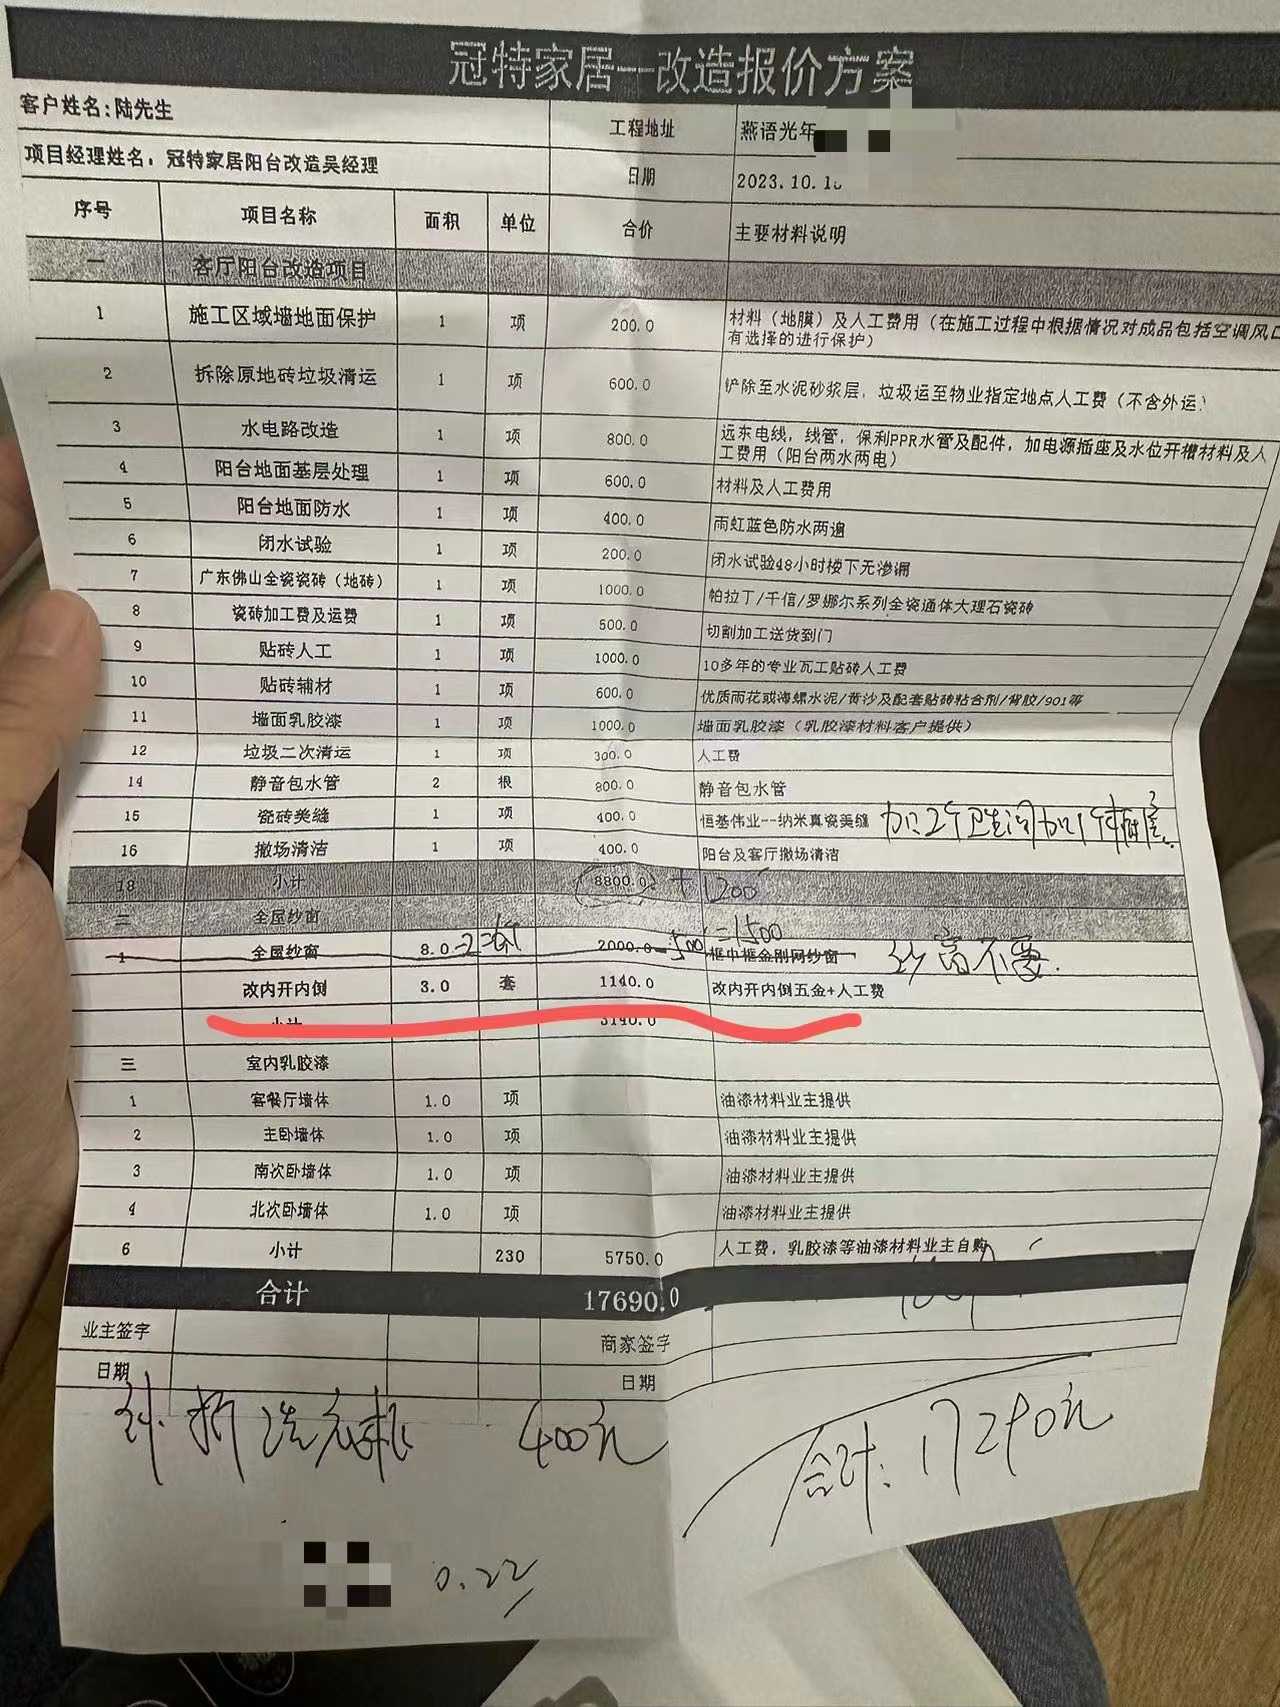 冠特家居--改造报价方案
客户姓名:陆先生 工程地址 燕语光年
项目经理姓名：冠特家居阳台改造吴经理 日期 2023.10.1
序号 项目名称 面积 单位 合价 主要材料说明
一 客厅阳台改造项目
1 施工区域墙地面保护 1 项 200.0 材料（地膜）及人工费用（在施工过程中根据情况对成品包括空调风口
有选择的进行保护）
2 拆除原地砖垃圾清运 1 项 600.0 铲除至水泥砂浆层，垃圾运至物业指定地点人工费（不含外运）
3 水电路改造 1 项 800.0 远东电线，线管，保利PPR水管及配件，加电源插座及水位开槽材料及人
工费用（阳台两水两电）
4 阳台地面基层处理 1 项 600.0 材料及人工费用
5 阳台地面防水 1 项 400.0 雨虹蓝色防水两遍
6 闭水试验 1 项 200.0 闭水试验48小时楼下无渗漏
7 广东佛山全瓷瓷砖（地砖） 1 项 1000.0 帕拉丁/千信/罗娜尔系列全瓷通体大理石瓷砖
8 瓷砖加工费及运费 1 项 500.0 切割加工送货到门
9 贴砖人工 1 项 1000.0 10多年的专业瓦工贴砖人工费
10 贴砖辅材 1 项 600.0 优质雨花或海螺水泥/黄沙及配套贴砖粘合剂/背胶/901等
11 墙面乳胶漆 1 项 1000.0 墙面乳胶漆（乳胶漆材料客户提供）
12 垃圾二次清运 1 项 300.0 人工费
14 静音包水管 2 根 800.0 静音包水管
15 瓷砖美缝 1 项 400.0 恒基伟业--纳米真瓷美缝 加2个卫生间加1个
16 撤场清洁 1 项 400.0 阳台及客厅撤场清洁
18 小计 8800.0 +1200
二 全屋纱窗
1 全屋纱窗 8.0 -2= 2000.0 -500 =1500 框中框金刚网纱窗 纱窗不要.
改内开内倒 3.0 套 1140.0 改内开内倒五金+人工费
小计 3140.0
三 室内乳胶漆
1 客餐厅墙体 1.0 项 油漆材料业主提供
2 主卧墙体 1.0 项 油漆材料业主提供
3 南次卧墙体 1.0 项 油漆材料业主提供
4 北次卧墙体 1.0 项 油漆材料业主提供
6 小计 230 5750.0 人工费，乳胶漆等油漆材料业主自购
合计 17690.0
业主签字 商家签字
日期 日期
拆洗衣机 400元
合计: 17290元
0.22